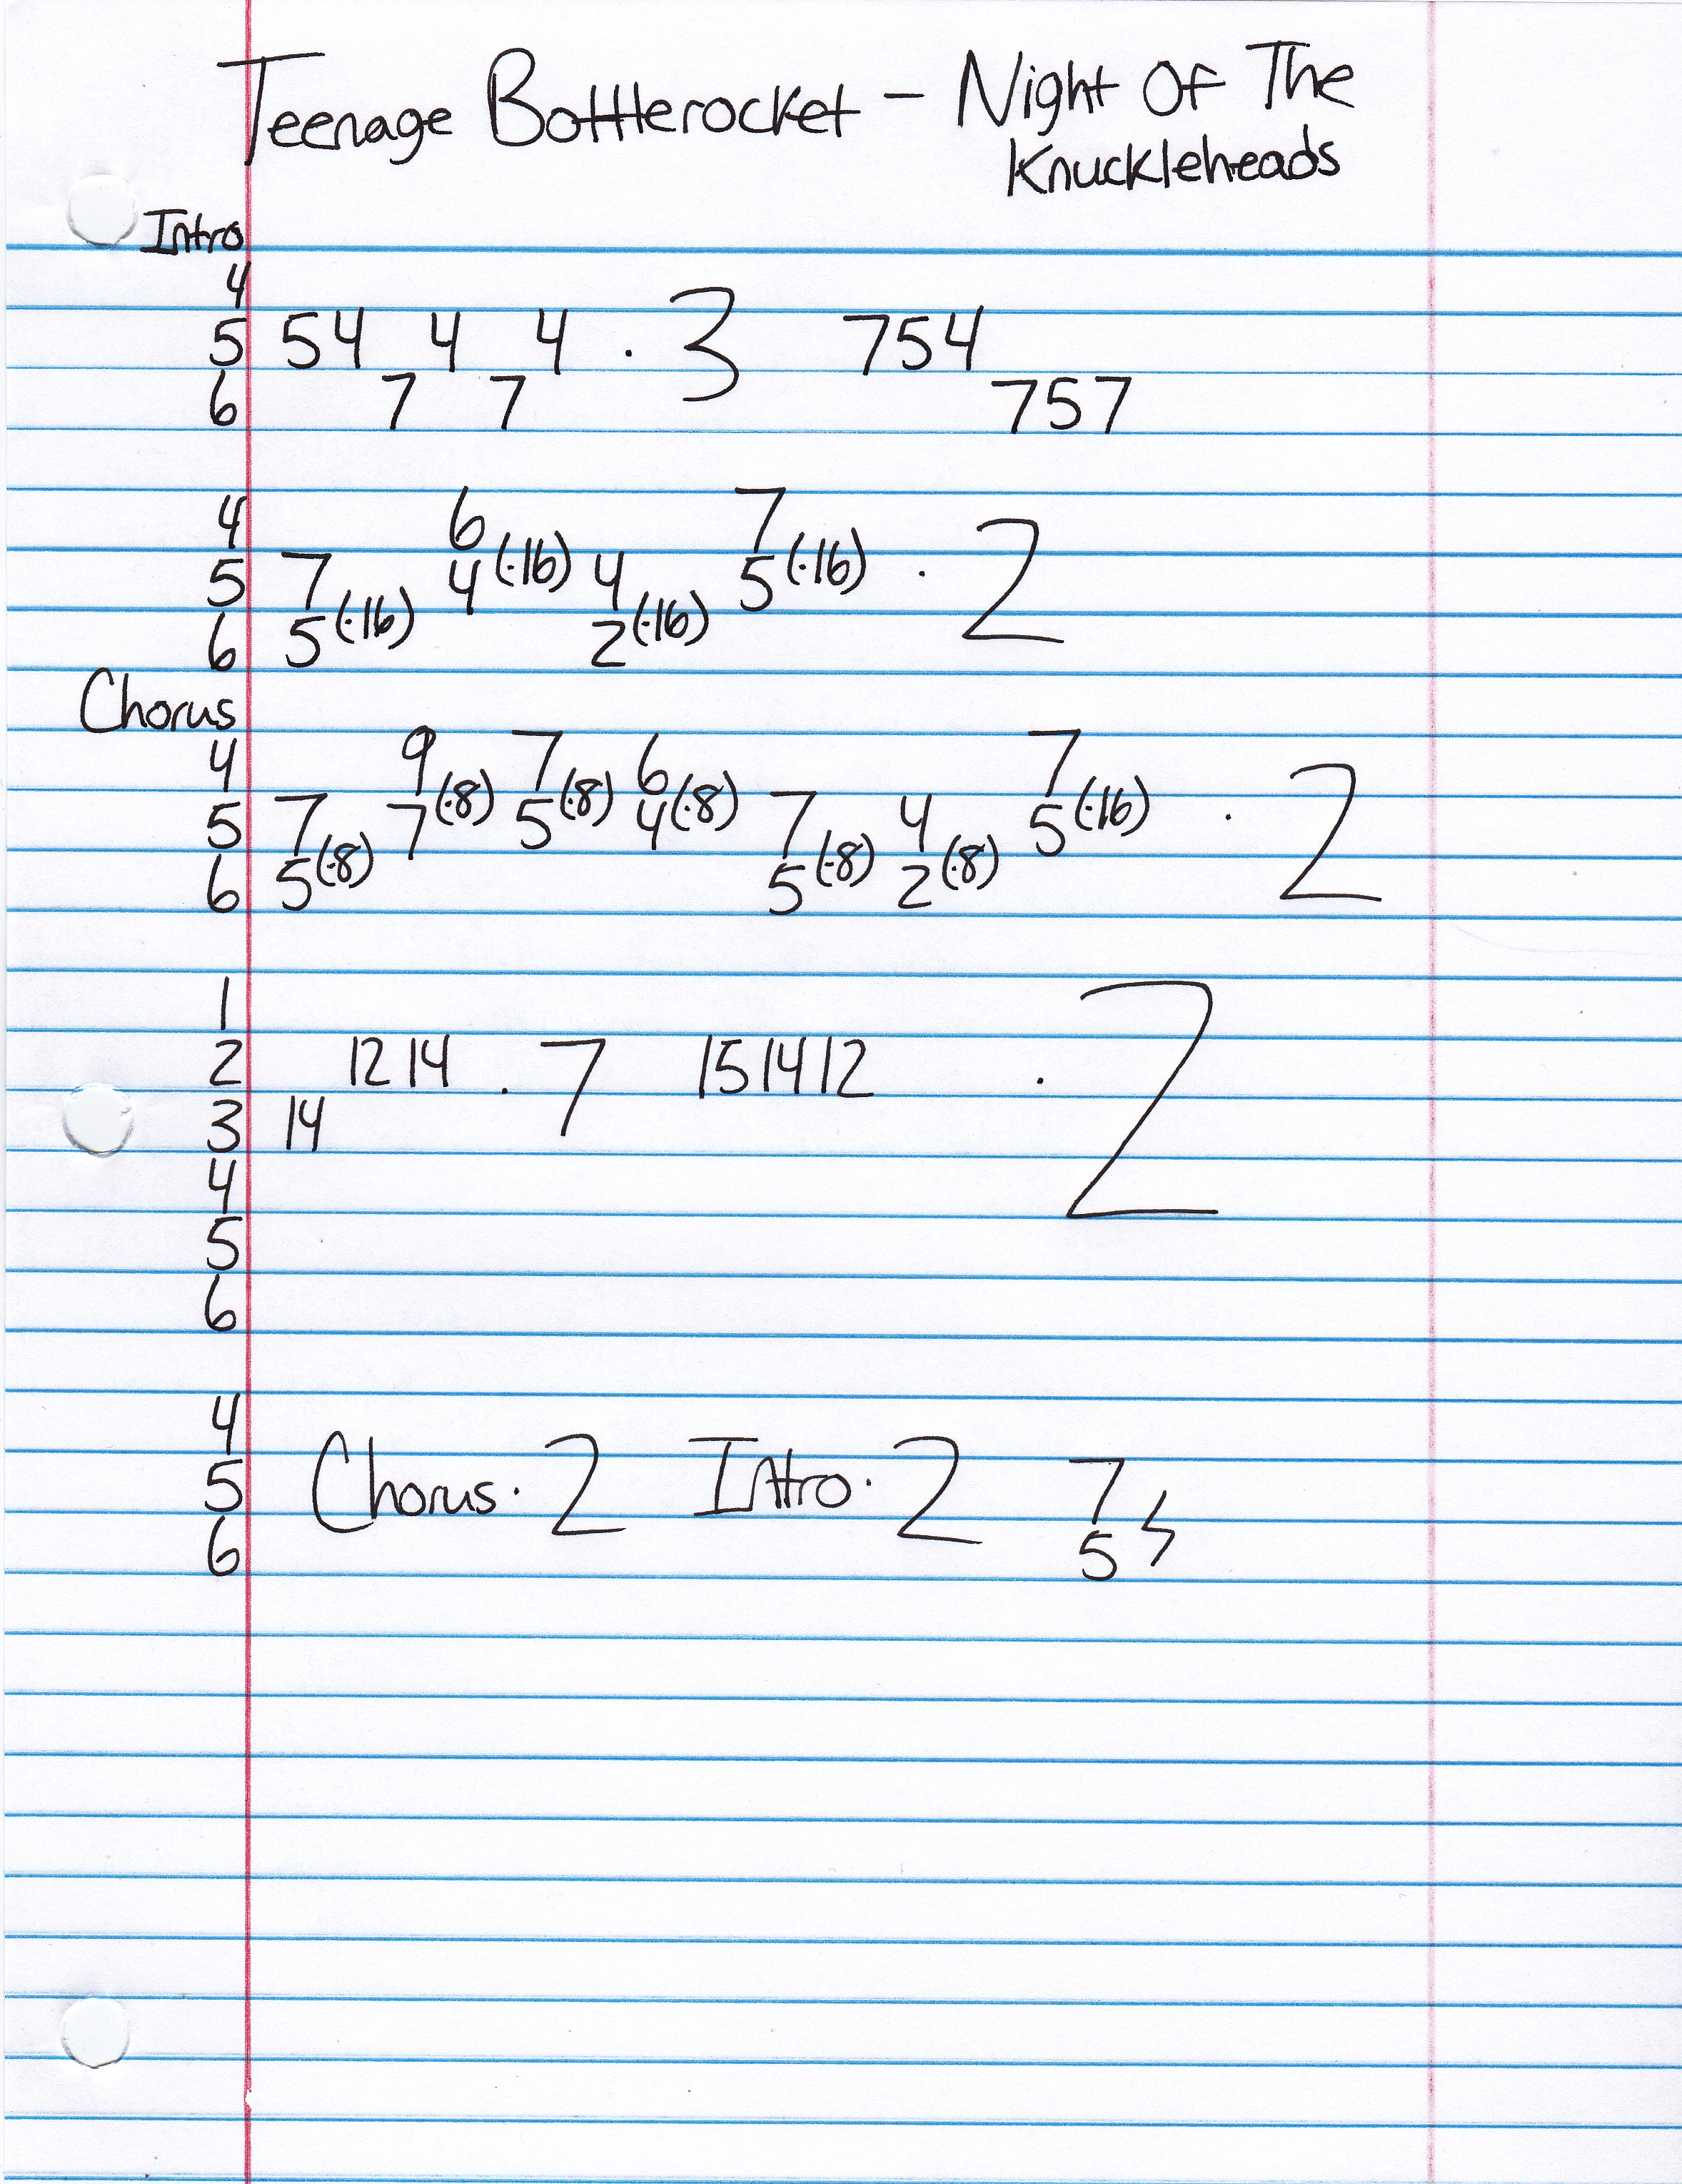 Teenage Bottlerocket - Night Of The
Knuckleheads
Intro
4
5 54 4 4 · 3 754
6 7 7 757
4 6 7
5 7 4(·16) 4 5(·16) · 2
6 5(·16) 2(·16)
Chorus
4 9 7 6 7
5 7 7(·8) 5(·8) 4(·8) 7 4 5(·16) · 2
6 5(·8) 5(·8) 2(·8)
1
2 12 14 · 7 15 14 12 · 2
3 14
4
5
6
4
5 Chorus · 2 Intro · 2 7
6 5